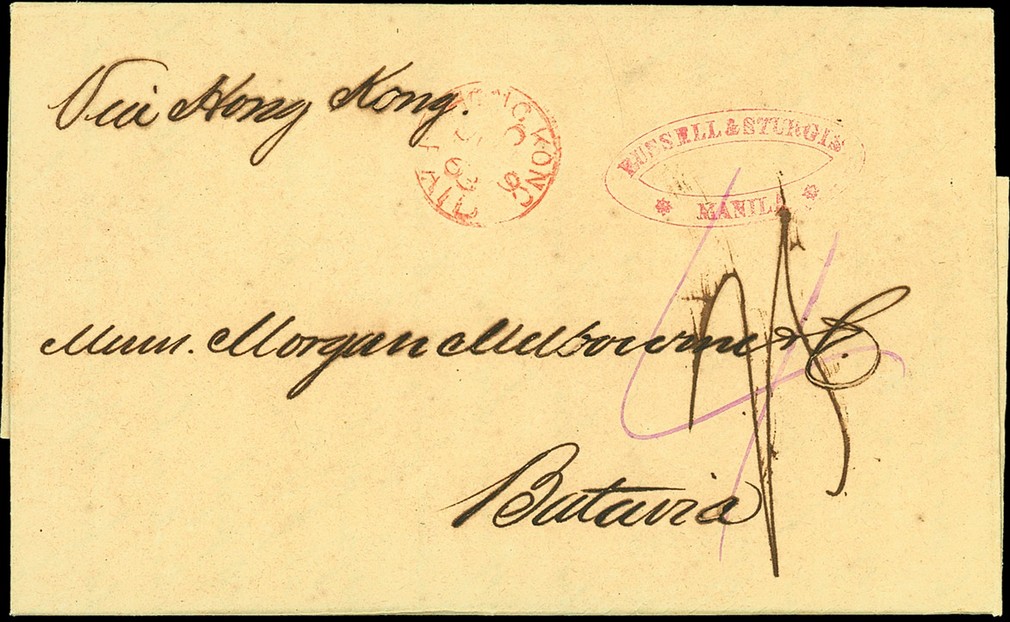 Via Hong Kong.
HONG KONG
RUSSELL & STURGIS
MANILA
Messrs. Morgan Melbourne & C.
Batavia